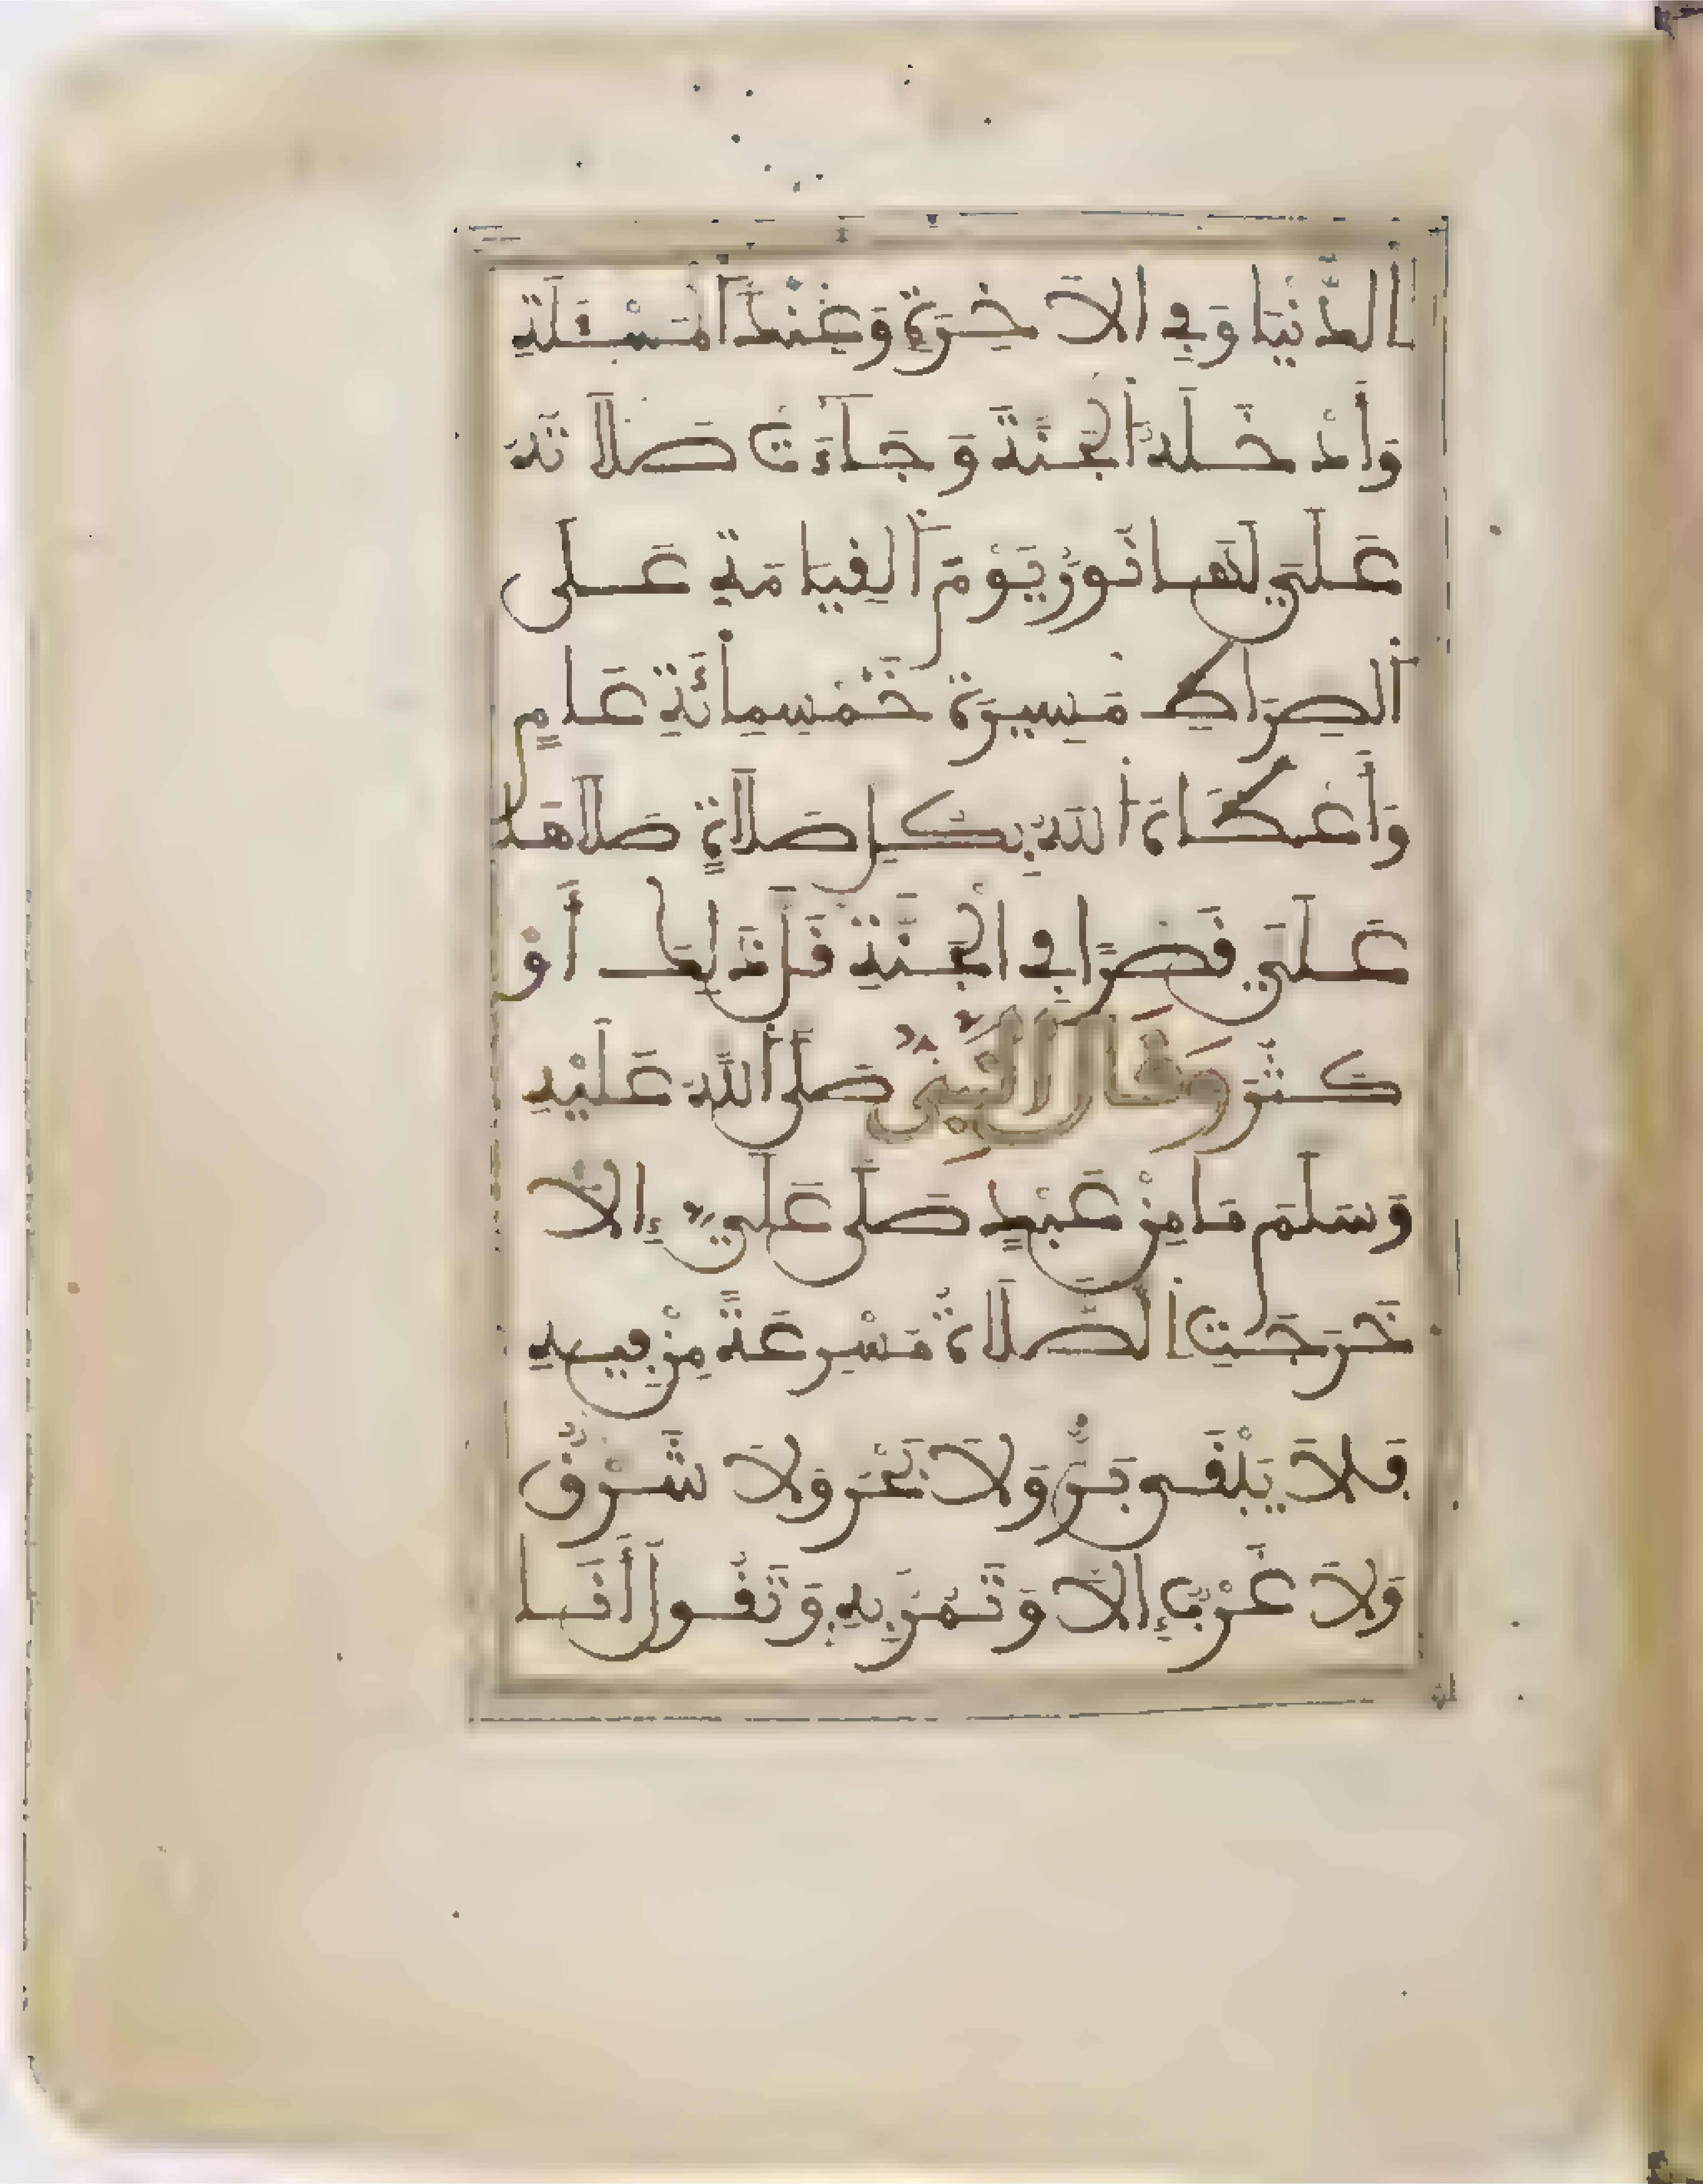 الدُّنْيَا وَفِي الْآخِرَةِ وَعِنْدَ الْمَسْئَلَةِ
وَأَدْخَلَهُ الْجَنَّةَ وَجَاءَتْ صَلَاتُهُ
عَلَيَّ لَهَا نُورٌ يَوْمَ الْقِيَامَةِ عَلَى
الصِّرَاطِ مَسِيرَةَ خَمْسِمِائَةِ عَامٍ
وَأَعْطَاهُ اللهُ بِكُلِّ صَلَاةٍ صَلَاهَا
عَلَيَّ قَصْرًا فِي الْجَنَّةِ قَلَّ ذَلِكَ أَوْ
كَثُرَ وَقَالَ النَّبِيُّ صَلَّى اللهُ عَلَيْهِ
وَسَلَّمَ مَا مِنْ عَبْدٍ صَلَّى عَلَيَّ إِلَّا
خَرَجَتِ الصَّلَاةُ مُسْرِعَةً مِنْ فِيهِ
فَلَا يَبْقَى بَرٌّ وَلَا بَحْرٌ وَلَا شَرْقٌ
وَلَا غَرْبٌ إِلَّا وَتَمُرُّ بِهِ وَتَقُولُ أَنَا